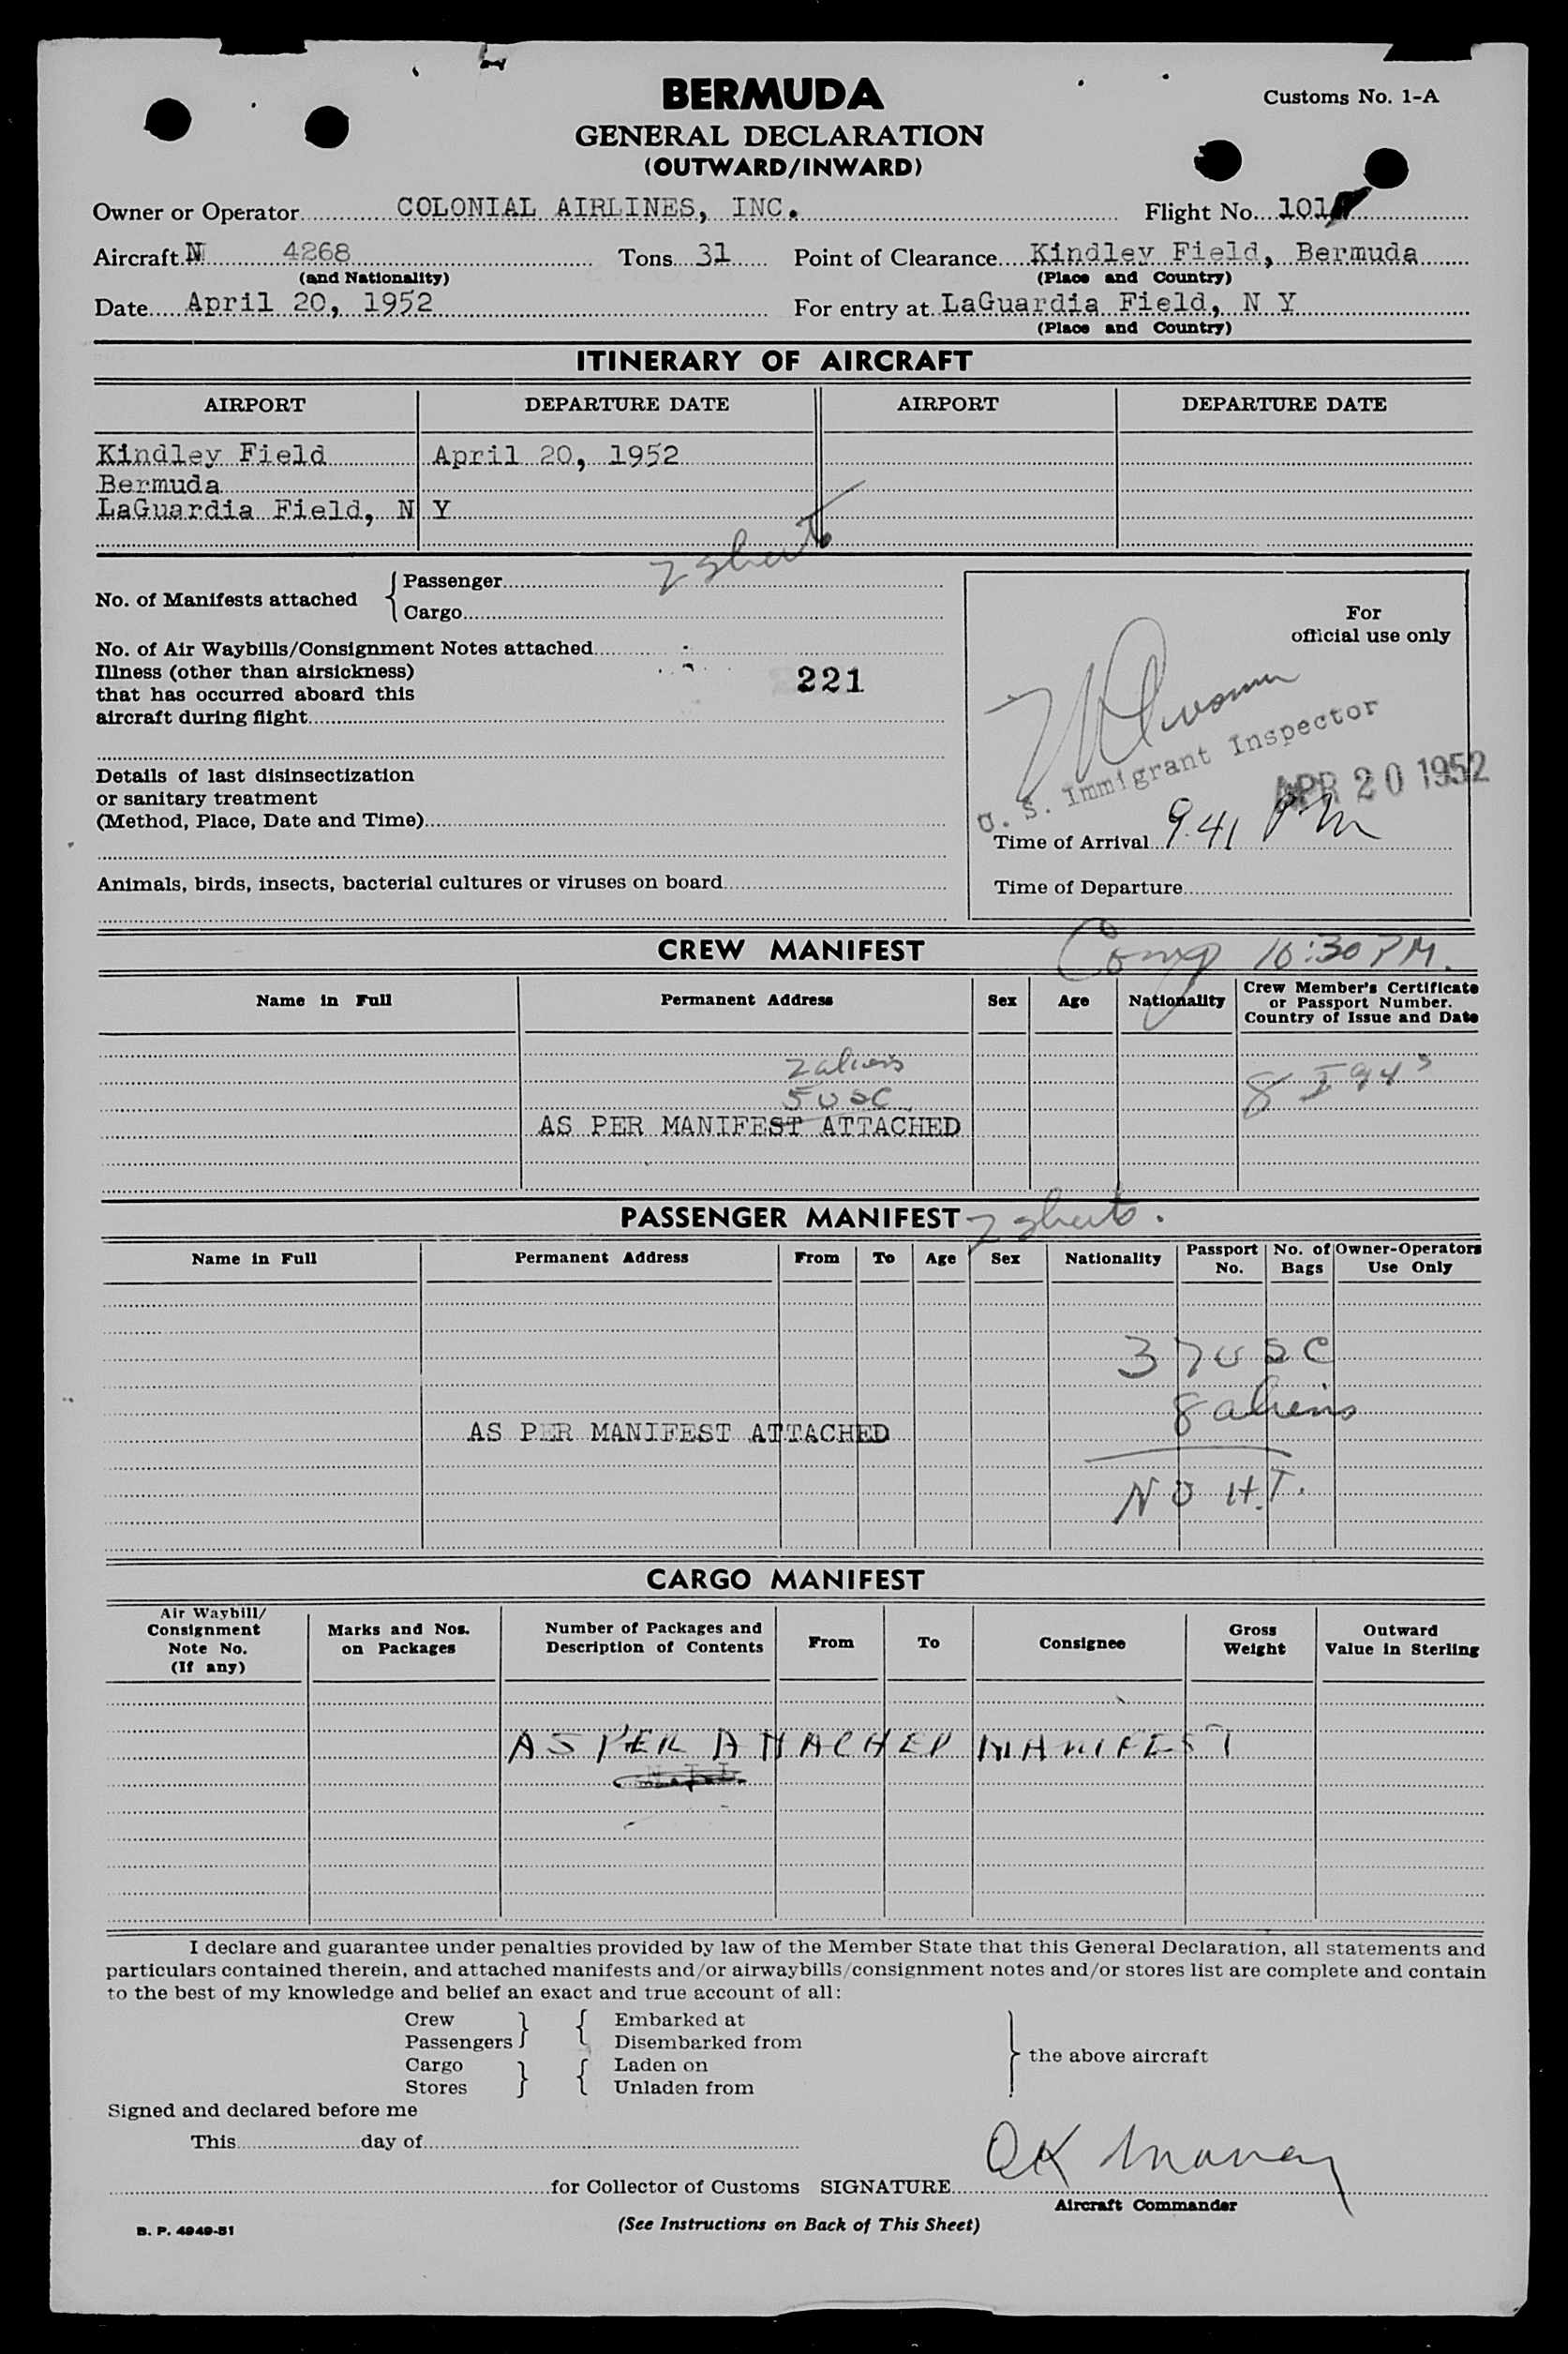 BERMUDA
Customs No. 1-A
GENERAL DECLARATION
(OUTWARD/INWARD)
Owner or Operator COLONIAL AIRLINES, INC. Flight No. 101
Aircraft N 4268 Tons 31 Point of Clearance Kindley Field, Bermuda
(and Nationality) (Place and Country)
Date April 20, 1952 For entry at LaGuardia Field, N Y
(Place and Country)
ITINERARY OF AIRCRAFT
AIRPORT DEPARTURE DATE AIRPORT DEPARTURE DATE
Kindley Field April 20, 1952
Bermuda
LaGuardia Field, N Y
2 sheets
No. of Manifests attached { Passenger
Cargo
No. of Air Waybills/Consignment Notes attached
Illness (other than airsickness)
that has occurred aboard this
aircraft during flight
221
Details of last disinsectization
or sanitary treatment
(Method, Place, Date and Time)
Animals, birds, insects, bacterial cultures or viruses on board
For
official use only
U. S. Immigrant Inspector
APR 20 1952
Time of Arrival 9.41 PM
Time of Departure
CREW MANIFEST
Comp 10:30 PM.
Name in Full Permanent Address Sex Age Nationality Crew Member's Certificate
or Passport Number.
Country of Issue and Date
2 aliens
8 I 94's
5 USC
AS PER MANIFEST ATTACHED
PASSENGER MANIFEST 2 sheets.
Name in Full Permanent Address From To Age Sex Nationality Passport No. No. of Bags Owner-Operators Use Only
37 USC
8 aliens
AS PER MANIFEST ATTACHED
NO H.T.
CARGO MANIFEST
Air Waybill/
Consignment
Note No.
(If any)
Marks and Nos.
on Packages
Number of Packages and
Description of Contents
From To Consignee
Gross
Weight
Outward
Value in Sterling
AS PER ATTACHED MANIFEST
I declare and guarantee under penalties provided by law of the Member State that this General Declaration, all statements and
particulars contained therein, and attached manifests and/or airwaybills/consignment notes and/or stores list are complete and contain
to the best of my knowledge and belief an exact and true account of all:
Crew } { Embarked at
Passengers Disembarked from
Cargo } { Laden on } the above aircraft
Stores Unladen from
Signed and declared before me
This day of
for Collector of Customs SIGNATURE
Aircraft Commander
B. P. 4949-51
(See Instructions on Back of This Sheet)